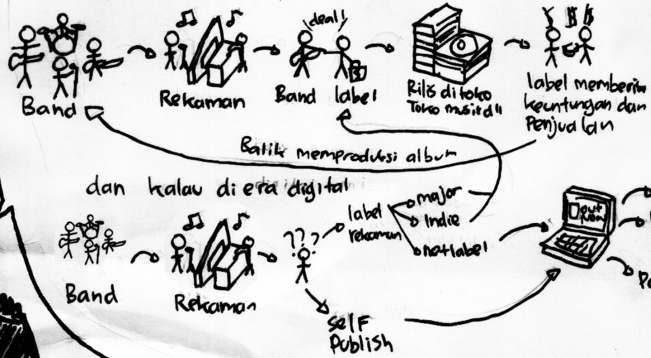 deal!
Band
Rekaman
Band label
Rilis di toko
Toko musik dll
label memberi
keuntungan dan
Penjualan
Balik memproduksi album
dan kalau di era digital
Band
Rekaman
????
label
rekaman
major
Indie
netlabel
Self
Publish